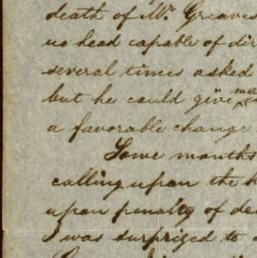 death of Mr. Greaves
no head capable of dir
several times asked
but he could give me
a favorable change
Some months
calling upon the h
upon penalty of de
I was surprized to